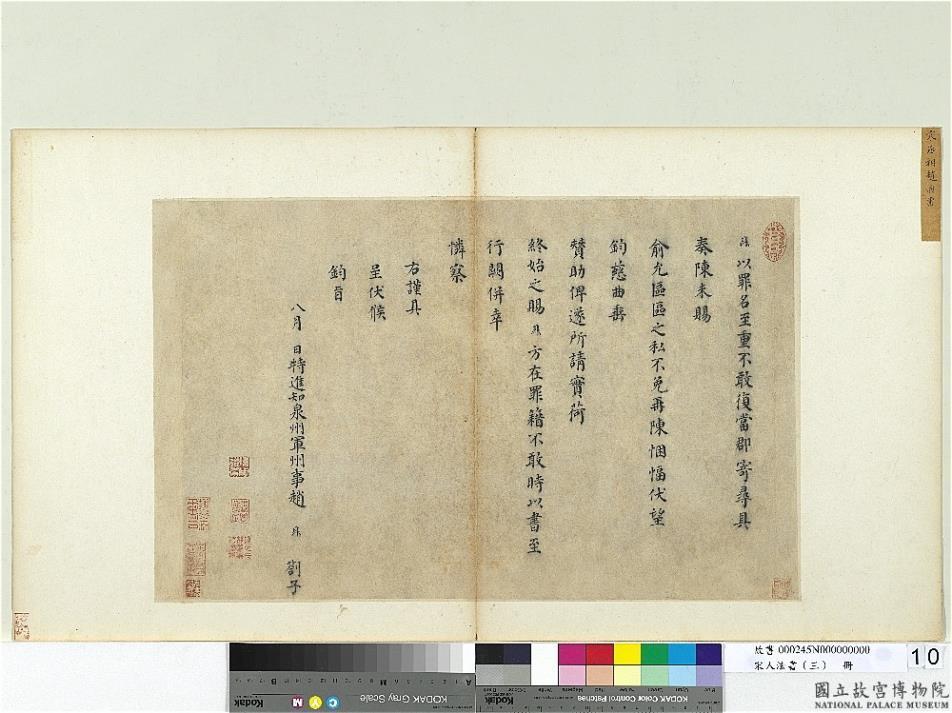 宋丞相趙鼎書
鼎以罪名至重不敢復當郡寄尋具
奏陳未賜
俞允區區之私不免再陳悃愊伏望
鈞慈曲垂
贊助俾遂所請實荷
終始之賜鼎方在罪籍不敢時以書至
行闕併幸
憐察
右謹具
呈伏候
鈞旨
八月 日特進知泉州軍州事趙 鼎 劄子
KODAK Gray Scale
Kodak
C
Y
M
KODAK Color Control Patches
Kodak
故書 000245N000000000
宋人法書(三) 冊
10
國立故宮博物院
NATIONAL PALACE MUSEUM